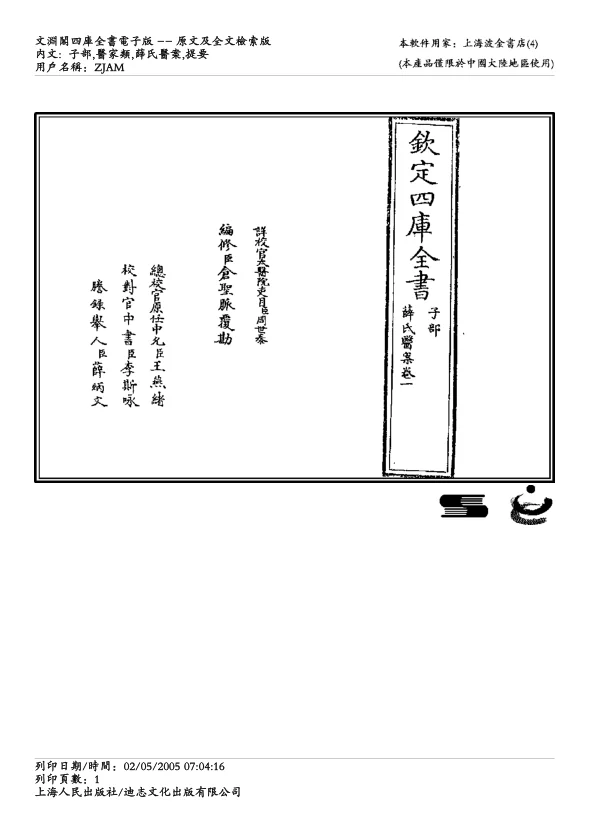 文淵閣四庫全書電子版 —— 原文及全文檢索版
內文: 子部,醫家類,薛氏醫案,提要
用戶名稱: ZJAM
本軟件用家: 上海波金書店(4)
(本產品僅限於中國大陸地區使用)
欽定四庫全書
子部
薛氏醫案卷一
詳校官太醫院吏目臣周世泰
編修臣倉聖脈覆勘
總校官原任中允臣王燕緒
校對官中書臣李斯咏
謄錄舉人臣薛炳文
列印日期/時間: 02/05/2005 07:04:16
列印頁數: 1
上海人民出版社/迪志文化出版有限公司